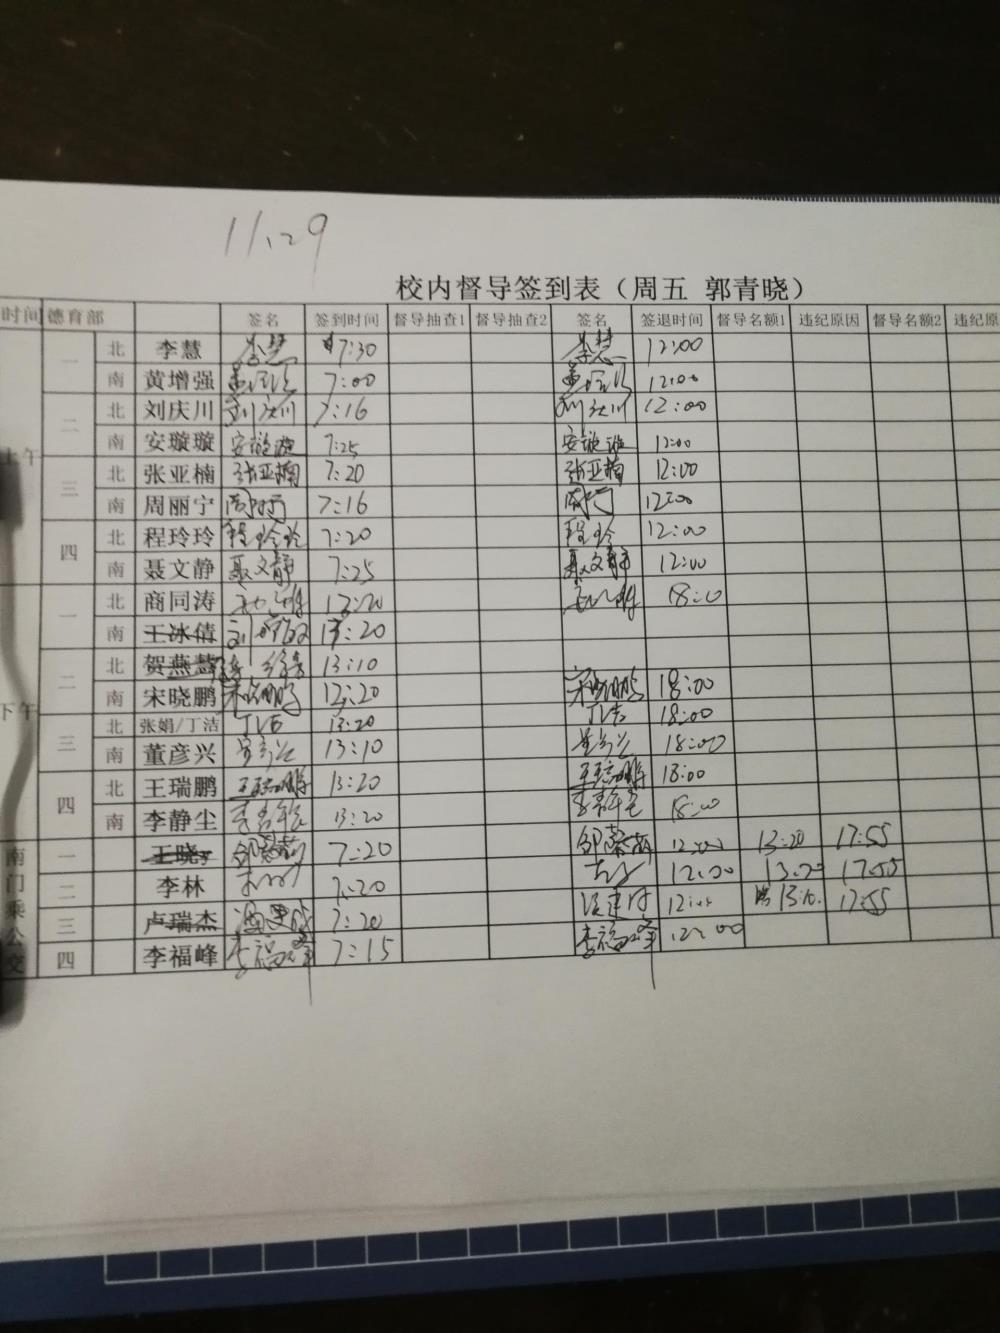 11.29
校内督导签到表（周五 郭青晓）
时间 德育部 签名 签到时间 督导抽查1 督导抽查2 签名 签退时间 督导名额1 违纪原因 督导名额2 违纪原
上午 一 北 李慧 李慧 7:30 李慧 12:00
南 黄增强 7:00 12:00
二 北 刘庆川 刘庆川 7:16 刘庆川 12:00
南 安璇璇 安璇璇 7:25 安璇璇 12:00
三 北 张亚楠 张亚楠 7:20 张亚楠 12:00
南 周丽宁 7:16 12:00
四 北 程玲玲 程玲玲 7:20 程玲 12:00
南 聂文静 聂文静 7:25 聂文静 12:00
下午 一 北 商同涛 13:20 18:00
南 王冰倩 13:20
二 北 贺燕慧 13:10
南 宋晓鹏 宋晓鹏 12:20 宋晓鹏 18:00
三 北 张娟/丁洁 丁洁 13:20 丁洁 18:00
南 董彦兴 13:10 董彦兴 18:00
四 北 王瑞鹏 王瑞鹏 13:20 王瑞鹏 18:00
南 李静尘 李静尘 13:20 李静尘 18:00
南门乘公交 一 王晓 7:20 12:00 13:20 17:55
二 李林 7:20 12:00 13:20 17:55
三 卢瑞杰 7:20 12:00 13:10 17:55
四 李福峰 李福峰 7:15 李福峰 12:00